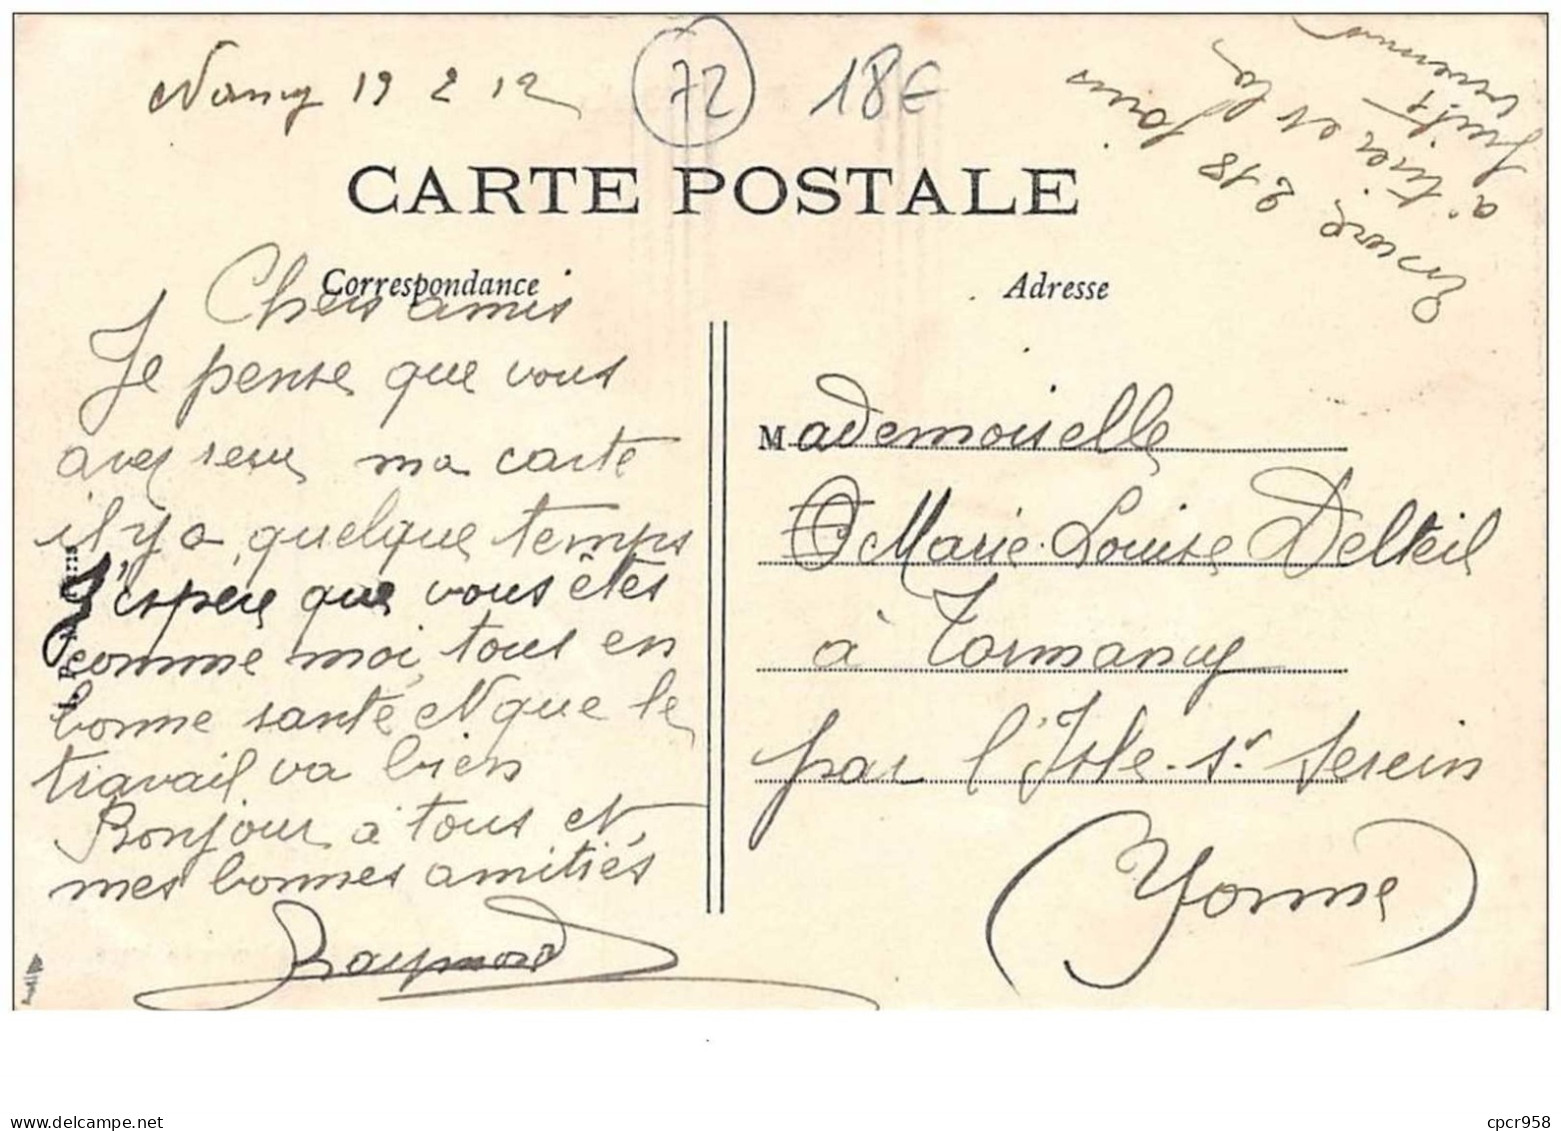 Nancy 19 2 12
72
18€
Encore 218 jours
à tirer et la
fuite
vivement
CARTE POSTALE
Correspondance
Adresse
Chers amis
Je pense que vous
avez reçu ma carte
il y a quelque temps
J'espère que vous êtes
comme moi, tous en
bonne santé et que le
travail va bien
Bonjour à tous et
mes bonnes amitiés
Raymond
Mademoiselle
Marie-Louise Delteil
à Tormancy
par l'Isle-sr Serein
Yonne
delcampe.net
cpcr958